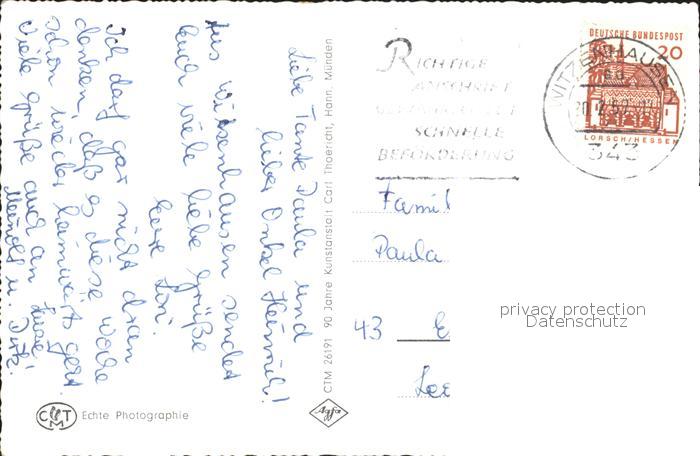 Liebe Tante Paula und
lieber Onkel Heinrich!
Aus Witzenhausen sendet
Euch viele liebe Grüße
Eure
Ich darf gar nicht dran
denken, daß es diese Woche
schon wieder heimwärts geht.
Viele Grüße auch an
u.
CTM 26191 90 Jahre Kunstanstalt Carl Thoericht, Hann. Münden
CTM
Echte Photographie
Agfa
RICHTIGE
ANSCHRIFT
SCHNELLE
BEFÖRDERUNG
WITZENHAUSEN
343
DEUTSCHE BUNDESPOST
20
LORSCH/HESSEN
Famil
Paula
43 E
privacy protection
Datenschutz